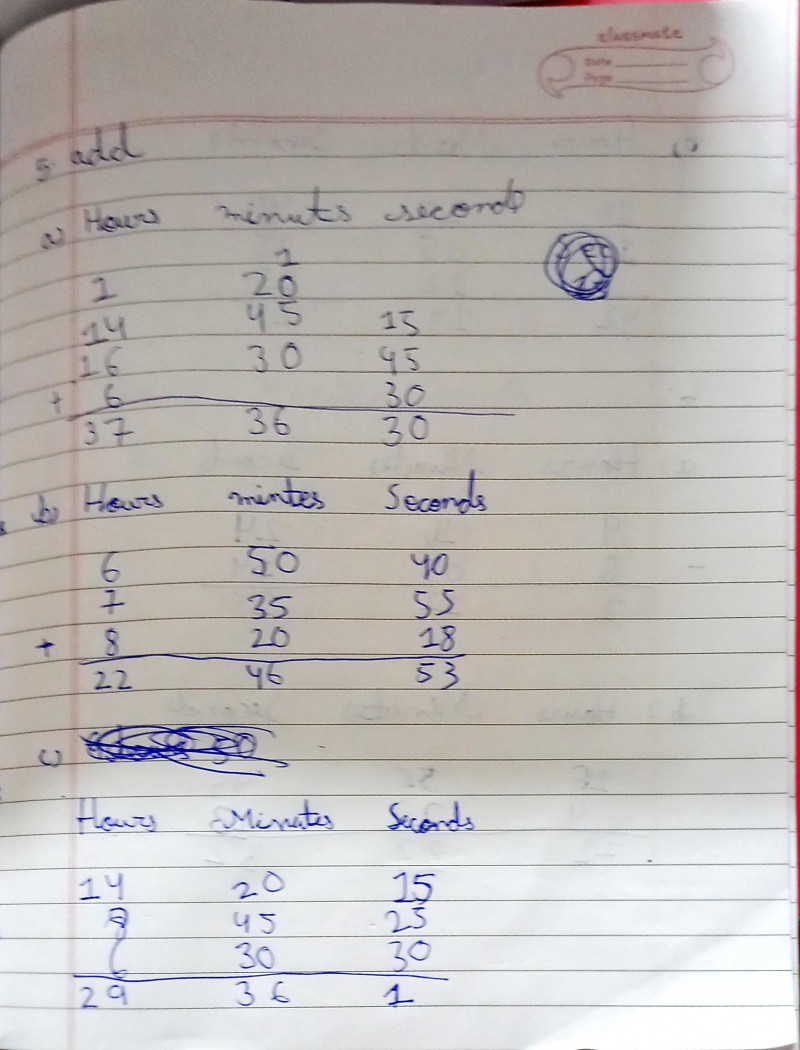 classmate
Date
Page
5 add
a) Hours minuts seconds
1
1 20
14 45 15
16 30 45
+ 6 30
37 36 30
b) Hours mintes Seconds
6 50 40
7 35 55
+ 8 20 18
22 46 53
c)
Hours Minutes Seconds
14 20 15
8 45 25
6 30 30
29 36 1